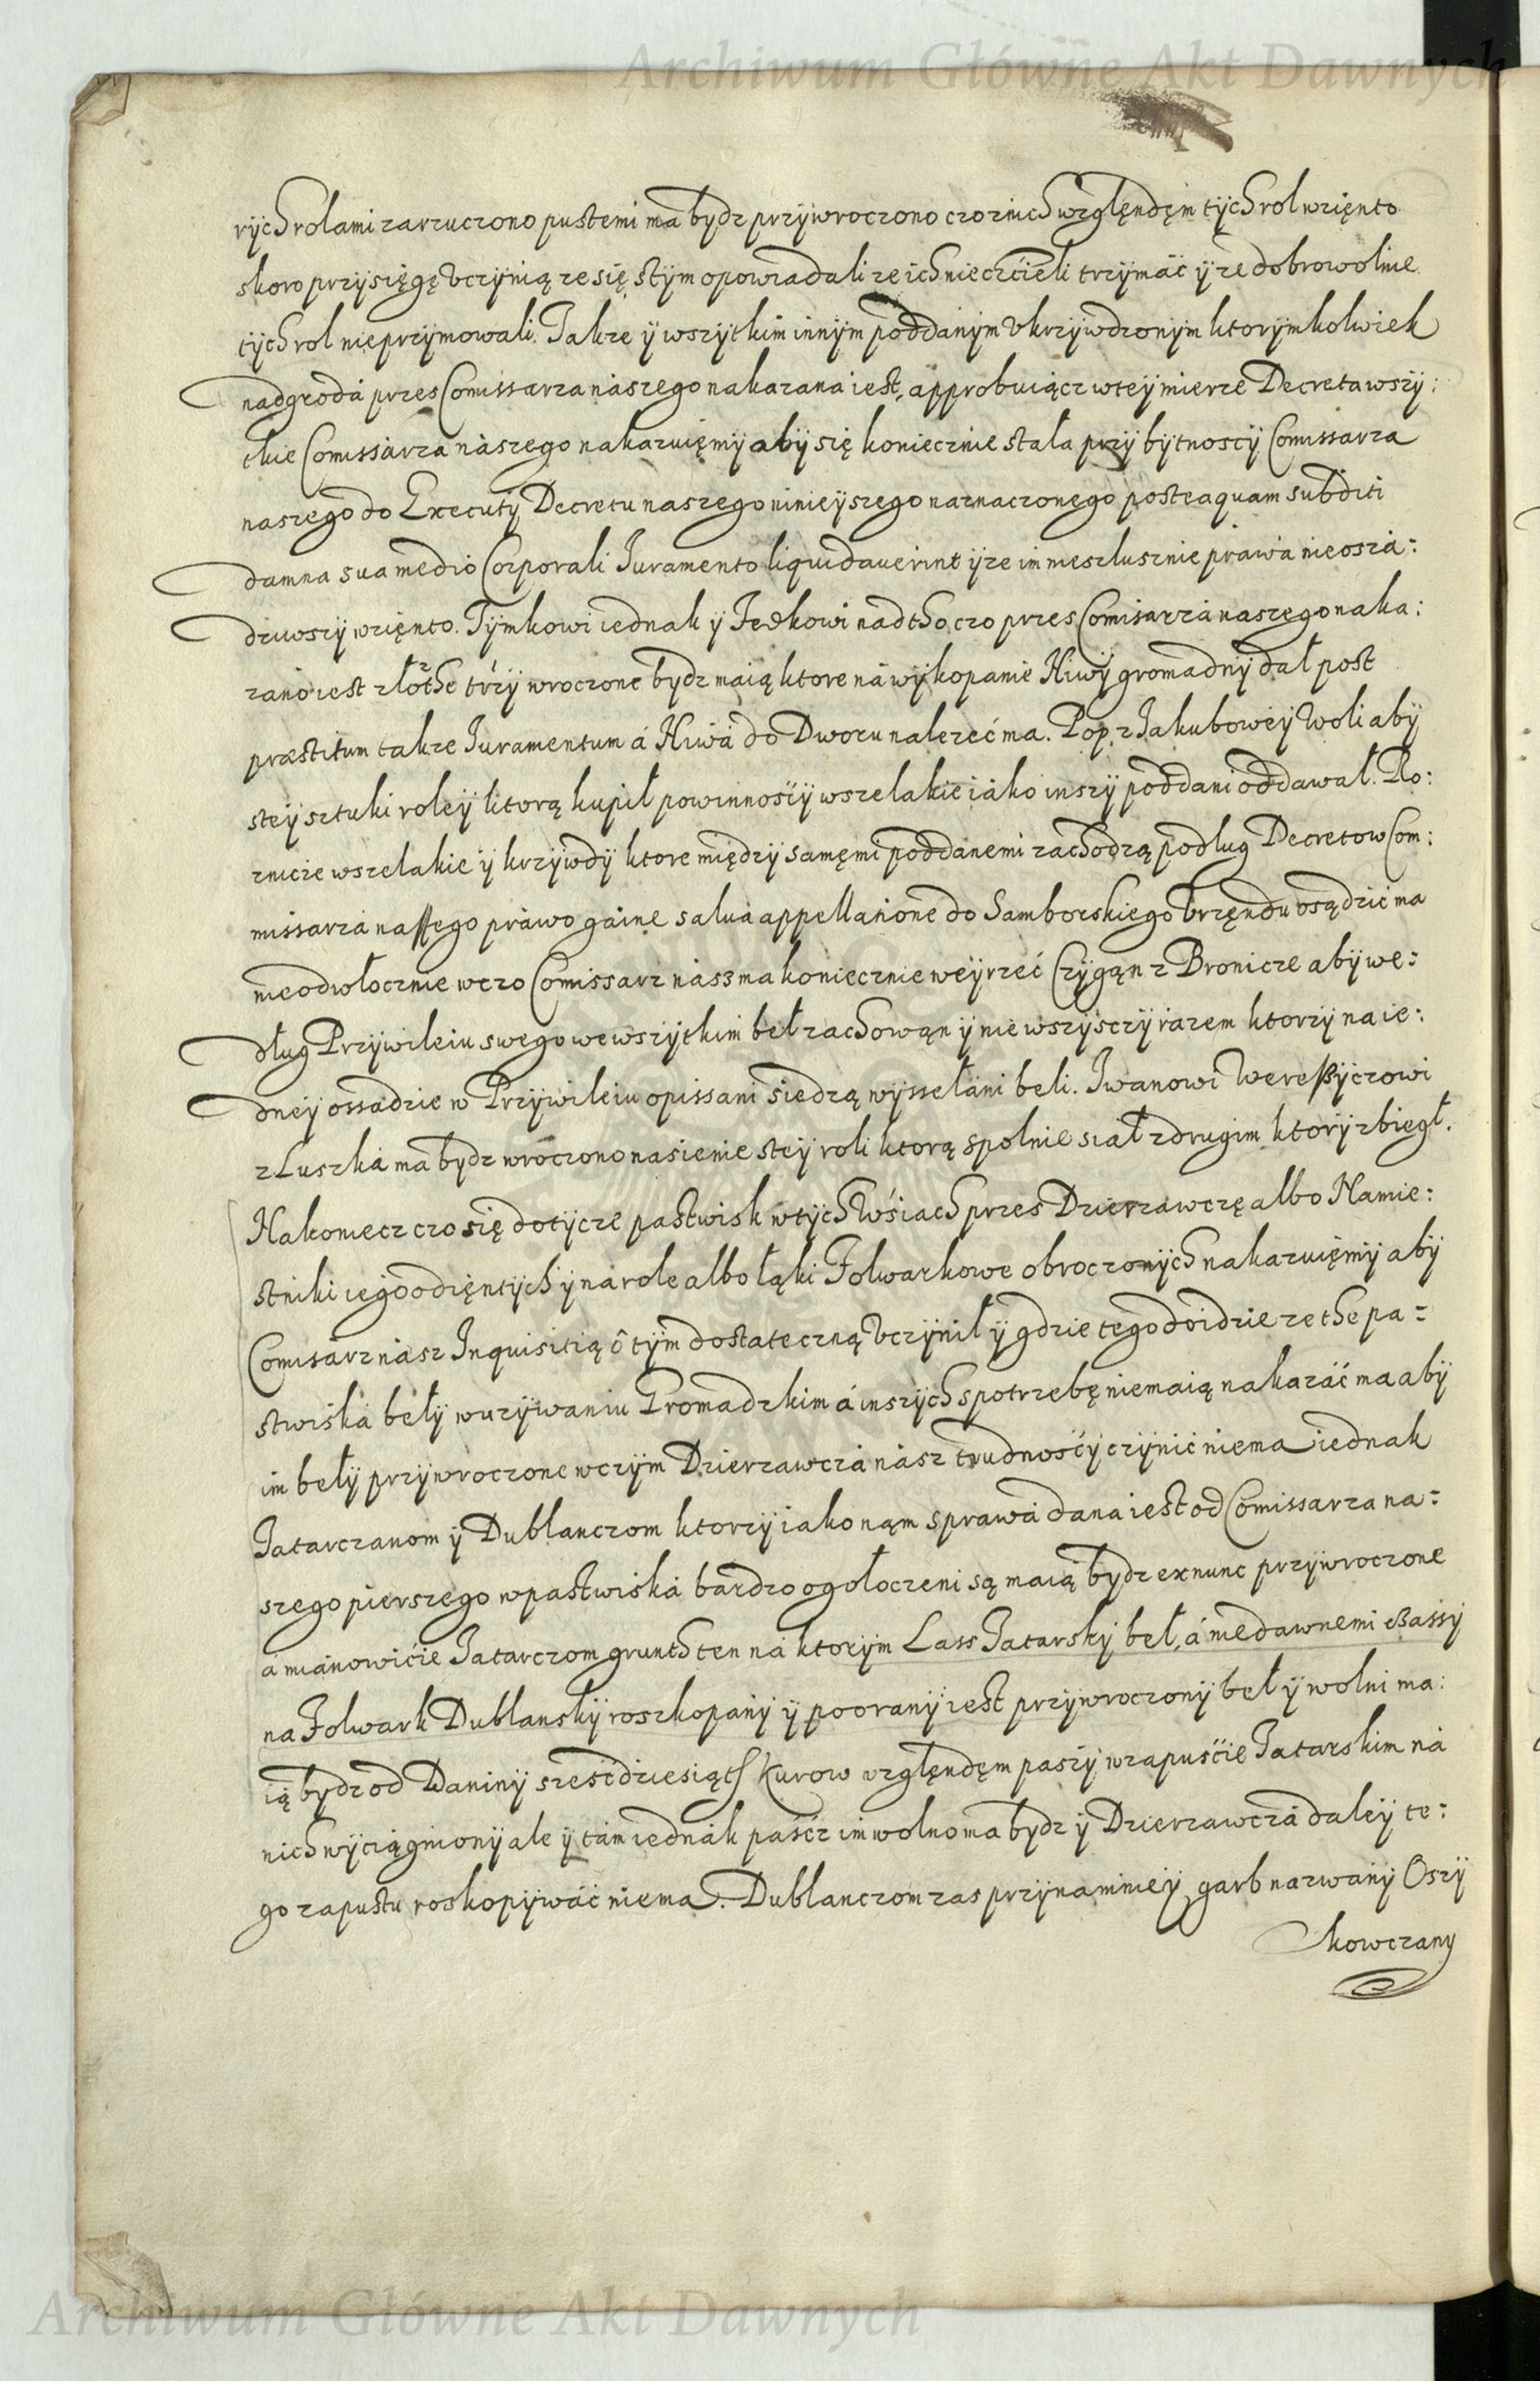 Archiwum Główne Akt Dawnych
rych rolami zarzuczono pustemi ma bydz przywroczono czo znich względęm tych rol wzięnto
skoro przysięgę vczynią ze się stym opowiadali ze ich nie czcieli trzymać y ze dobrowolnie
tych rol nieprzymowali. Takze y wszytkim innym poddanym vkrzywdzonym ktorymkolwiek
nadgroda przes Comissarza naszego nakazana iest, approbuiącz wtey mierze Decreta wszy:
tkie Comissarza naszego nakazuięmy aby się koniecznie stała przy bytnoscy Comissarza
naszego do Executy Decretu naszego ninieyszego naznaczonego posteaquam subditi
damna sua medio Corporali Iuramento liquidauerint y ze im nieszlusznie prawa nie osza:
dziwszy wzięnto. Tymkowi iednak y Fedkowi nadtho czo przes Comisarza naszego naka:
zano iest złothe trzy wroczone bydz maią ktore na wykopanie Niwy gromadny dał post
præstitum takze Iuramentum á Niwa do Dworu nalezeć ma. Pop z Iakubowey Woli aby
stey sztuki roley ktorą kupił powinnosci wszelakie iako inszy poddani oddawał. Ro:
znicze wszelakie y krzywdy ktore między samęmi poddanemi zachodzą podług Decretow Com:
missarza naszego prawo gaine salua appellatione do Samborskiego Vrzęndu osądzić ma
nieodwłocznie wczo Comissarz nasz ma koniecznie weyrzeć Czygąn z Bronicze aby we:
dług Przywileiu swego we wszytkim beł zachowąn y nie wszysczy razem ktorzy na ie:
dney ossadzie w Przywileiu opissani siedzą wysselani beli. Iwanowi Wereszyczowi
z Luszka ma bydz wroczono nasienie stey roli ktorą spolnie siał z drugim ktory zbiegł.
Nakoniecz czo się dotycze pastwisk w tych Wsiach przes Dzierzawczę albo Namie:
stniki iego odzięntych y na role albo łąki Folwarkowe obroczonych nakazuięmy aby
Comisarz nasz Inquisitią o tym dostateczną vczynił y gdzie tego doidzie ze the pa:
stwiska beły w uzywaniu Gromadzkim á inszych spotrzebę niemaią nakazać ma aby
im beły przywroczone wczym Dzierzawcza nasz trudnoscy czynić niema iednak
Tatarczanom y Dublanczom ktorzy iako nąm sprawa dana iest od Comissarza na:
szego pierszego w pastwiska bardzo ogołoczeni są maią bydz ex nunc przywroczone
a mianowicie Tatarczom grunth ten na ktorym Lass Tatarsky beł, á niedawnemi czassy
na Folwark Dublansky roszkopany y poorany iest przywroczony beł y wolni ma:
ią bydz od Daniny szescdziesiąth kurow względęm paszy w zapuscie Tatarskim na
nich wyciągniony ale y tam iednak pascz im wolno ma bydz y Dzierzawcza daley te:
go zapustu roskopywać niema. Dublanczom zas przynamniey garb nazwany Oszy
kowczany
Archiwum Główne Akt Dawnych